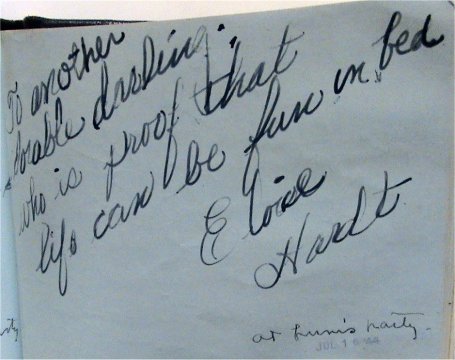 To another
orable darling:
who is proof that
life can be fun in bed
Eloise
Hardt
at party.
JUL 16 '44
ty